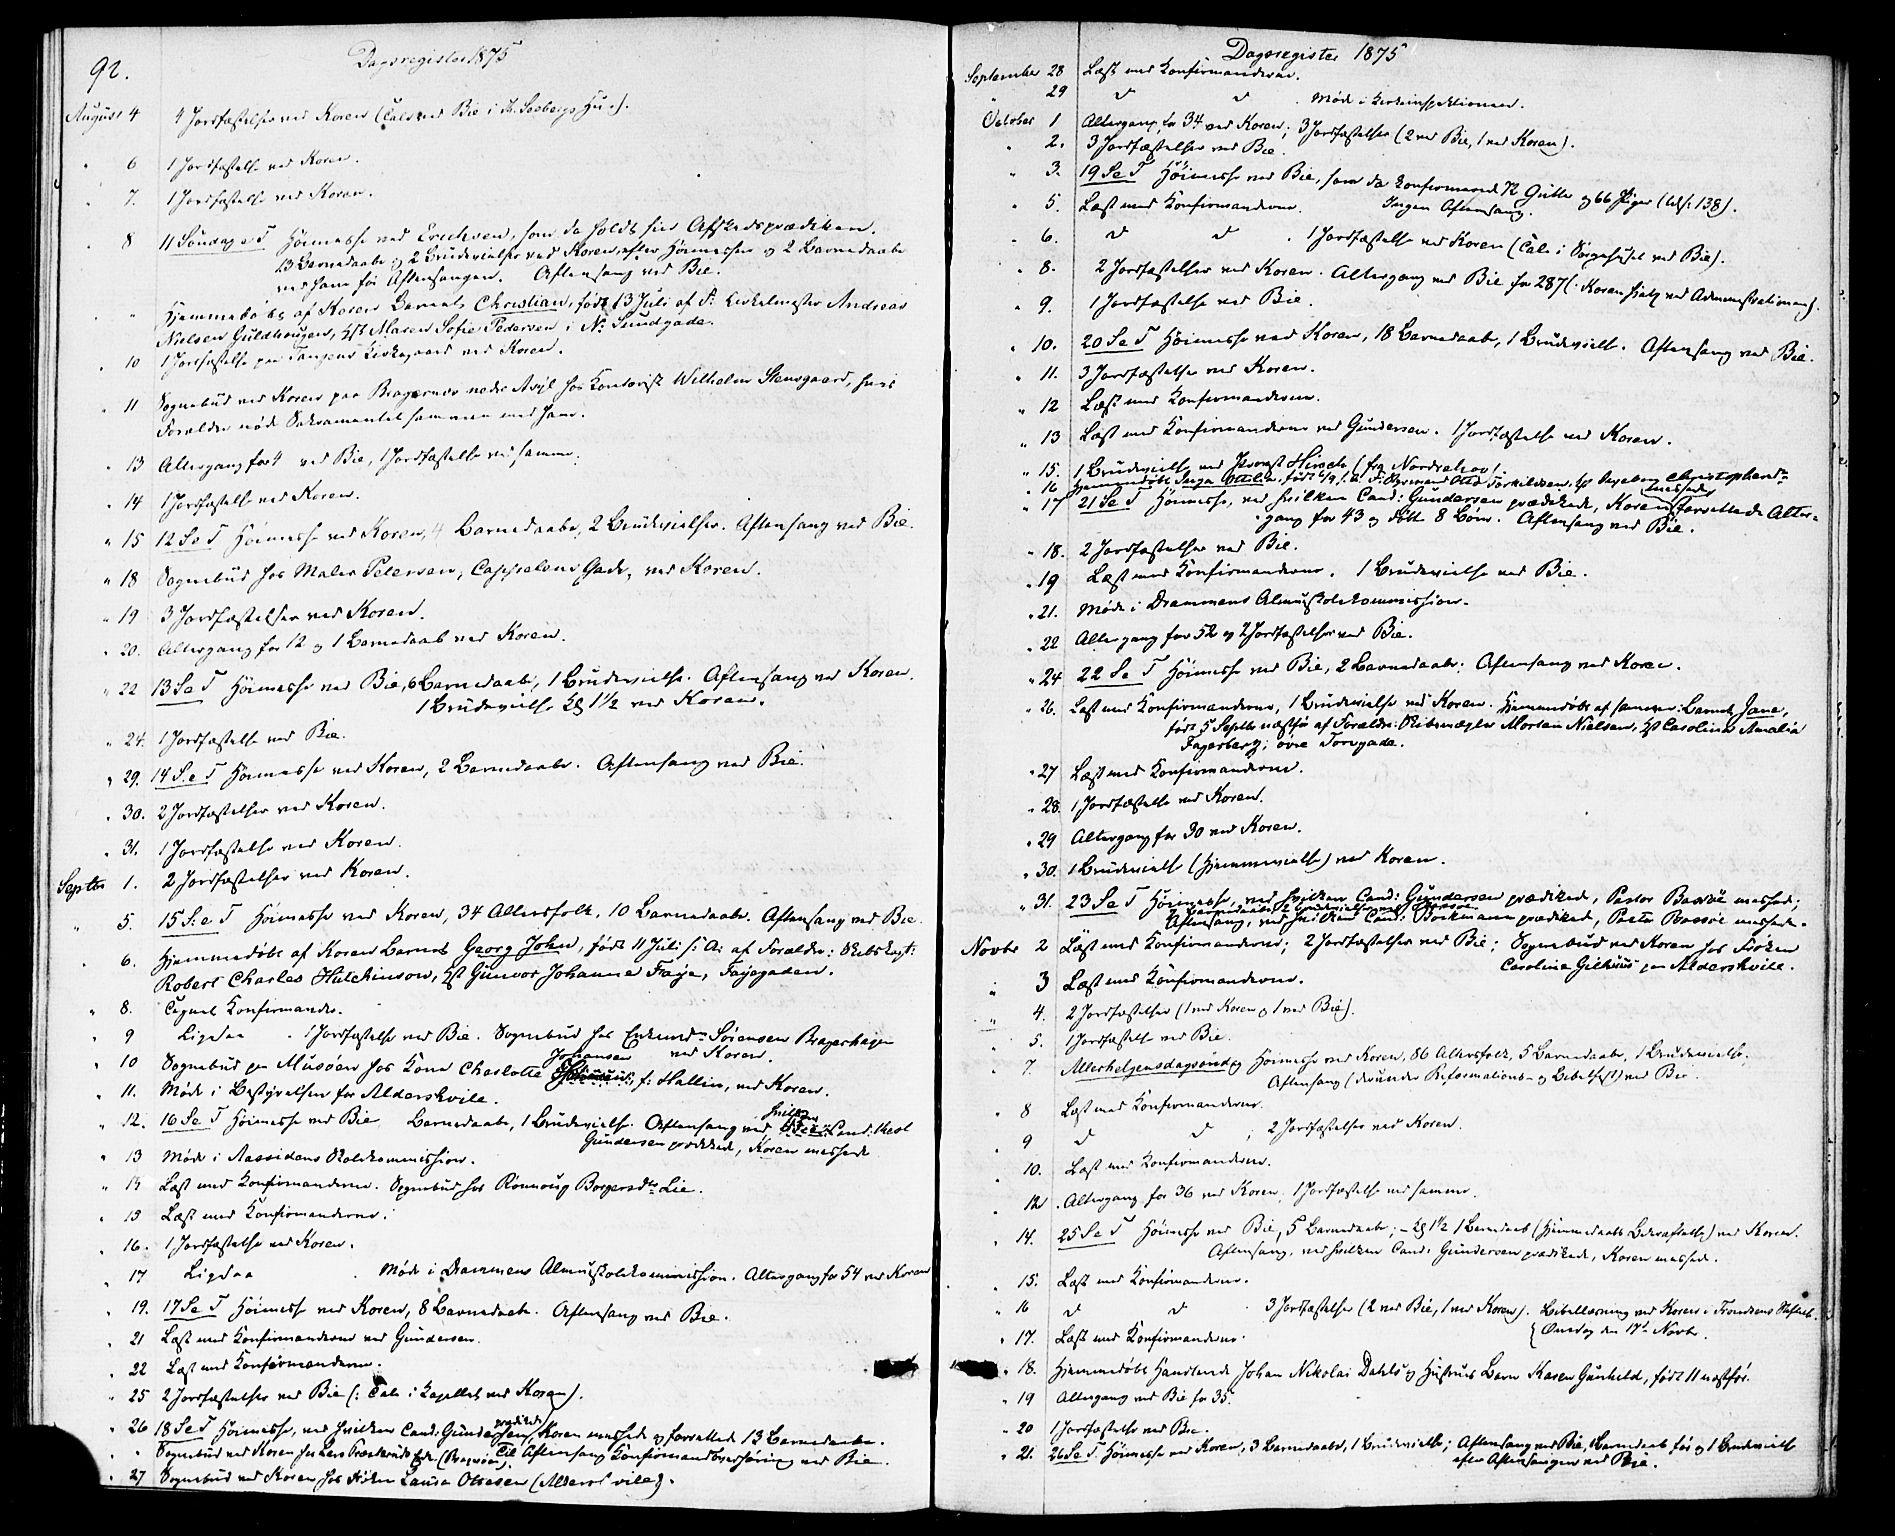 92.
Dagsregister 1875
August 4 4 Jordfæstelser ved Koren (Tale ved Bie i
" 6 1 Jordfæstelse ved Koren.
" 7. 1 Jordfæstelse ved Koren.
" 8 11 Søndag e T Høimesse ved Erichsen, som da holdt sin Afskedsprædiken.
13 Barnedaab og 2 Brudevielser ved Koren efter Høimessen og 2 Barnedaab
ved ham før Aftensangen. Aftensang ved Bie.
" Hjemmedøbt af Koren Barnet Christian, født 13 Juli af F: Andreas
Nielsen Guldhaugen, Hst Maren Sofie Pedersen i N. Sundgade.
" 10 1 Jordfæstelse paa Tangens Kirkegaard ved Koren.
" 11 Sognebud ved Koren paa Bragernes nedre Asyl hos Kontorist Wilhelm Stensgaard, hvis
Forældre nød Sakramentet sammen med ham.
" 13 Altergang for 4 ved Bie, 1 Jordfæstelse ved samme.
" 14 1 Jordfæstelse ved Koren.
" 15 12 S e T Høimesse ved Koren, 4 Barnedaab, 2 Brudevielser. Aftensang ved Bie.
" 18 Sognebud hos Maler Petersen, Cappelens Gade, ved Koren.
" 19 3 Jordfæstelser ved Koren.
" 20. Altergang for 12 og 1 Barnedaab ved Koren.
" 22 13 S e T Høimesse ved Bie, 6 Barnedaab, 1 Brudevielse. Aftensang ved Koren.
1 Brudevielse Kl 1½ ved Koren.
" 24. 1 Jordfæstelse ved Bie.
" 29. 14 S. e T Høimesse ved Koren, 2 Barnedaab. Aftensang ved Bie.
" 30. 2 Jordfæstelser ved Koren.
" 31. 1 Jordfæstelse ved Koren.
Septbr 1. 2 Jordfæstelser ved Koren.
" 5. 15 S: e T Høimesse ved Koren, 34 Altersfolk, 10 Barnedaab. Aftensang ved Bie.
" 6. Hjemmedøbt af Koren Barnet Georg John, født 11 Juli f: A: af Forældre: Skibskapt:
Robert Charles Hutchinson, Hst Gunvor Johanne Faye, Fayegaden.
" 8. Tegnet Konfirmander.
" 9 Ligedan. 1 Jordfæstelse ved Bie. Sognebud hos Sørensen Bragerhagen
ved Koren.
" 10 Sognebud paa Musøen hos Kone Charlotte Johansen f: Hallin, ved Koren.
" 11. Møde i Bestyrelsen for Aldershvile.
" 12. 16 S e T Høimesse ved Bie Barnedaab, 1 Brudevielse. Aftensang ved hvilken Cand. theol
Gundersen prædikede, Koren messede
" 13 Møde i Aassidens Skolekommission.
" 14 Læst med Konfirmanderne. Sognebud hos Rønnoug Borgersdtr Lie.
" 15 Læst med Konfirmanderne.
" 16. 1 Jordfæstelse ved Koren.
" 17 Ligedan. Møde i Drammens Almueskolekommission. Altergang for 54 ved Koren
" 19. 17 S e T Høimesse ved Koren, 8 Barnedaab. Aftensang ved Bie.
" 21 Læst med Konfirmanderne ved Gundersen.
" 22 Læst med Konfirmanderne.
" 25 2 Jordfæstelser ved Bie (: Tale i Kapellet ved Koren).
" 26 18 S e T Høimesse, ved hvilken Cand: Gundersen prædikede, Koren messede og forrettede 13 Barnedaab.
" Sognebud ved Koren hos Til Aftensang Konfirmandoverhøring ved Bie.
" 27 Sognebud ved Koren hos Frøken Laura Ottesen (Aldershvile).
Dagsregister 1875
September 28 Læst med Konfirmanderne.
" 29 d d. Møde i Kirkeinspektionen.
October 1 Altergang for 34 ved Koren; 3 Jordfæstelser (2 ved Bie, 1 ved Koren).
" 2. 3 Jordfæstelser ved Bie.
" 3. 19 S e T Høimesse ved Bie, som da konfirmerede 72 Gutter og 66 Piger (tils: 138).
Ingen Aftensang.
" 5. Læst med Konfirmanderne.
" 6. d d. 1 Jordfæstelse ved Koren (Tale i Sørgehuset ved Bie).
" 8. 2 Jordfæstelser ved Koren. Altergang ved Bie for 287 (: Koren hjalp ved Administrationen).
" 9. 1 Jordfæstelse ved Bie.
" 10. 20 S e T Høimesse ved Koren, 18 Barnedaab, 1 Brudevielse. Aftensang ved Bie.
" 11. 3 Jordfæstelser ved Koren.
" 12 Læst med Konfirmanderne.
" 13 Læst med Konfirmanderne ved Gundersen. 1 Jordfæstelse ved Koren.
" 15. 1 Brudevielse ved Provst Hirsch (fra Nordrehov).
" 16 Hjemmedøbt Inga Ottilia, født Otto Torkildsen, Hst Ingeborg Christophersdtr
" 17 21 S e T Høimesse, ved hvilken Cand: Gundersen prædikede, Koren messede, forrettede Alter-
gang for 43 og døbte 8 Børn. Aftensang ved Bie.
" 18. 2 Jordfæstelser ved Bie.
" 19 Læst med Konfirmanderne. 1 Brudevielse ved Bie.
" 21. Møde i Drammens Almueskolekommission.
" 22 Altergang for 52 og 2 Jordfæstelser ved Bie.
" 24 22 S e T Høimesse ved Bie, 2 Barnedaab. Aftensang ved Koren.
" 26. Læst med Konfirmanderne, 1 Brudevielse ved Koren. Hjemmedøbt af samme: Barnet Jane,
født 5 Septbr næstfør af Forældre: Skibsmægler Morten Nielsen, Hst Carolina Amalia
Fagerberg; øvre Torvgade.
" 27 Læst med Konfirmanderne.
" 28. 1 Jordfæstelse ved Koren.
" 29 Altergang for 30 ved Koren.
" 30. 1 Brudevielse (Hjemmevielse) ved Koren.
" 31. 23 S e T Høimesse, ved hvilken Cand: Gundersen prædikede, Pastor Bassøe messede;
Aftensang, ved hvilken Cand: Borkmann prædikede, Pastor Bassøe messede.
Novbr 2 Læst med Konfirmanderne; 2 Jordfæstelser ved Bie; Sognebud ved Koren hos Frøken
Caroline Gilhuus paa Aldershvile.
" 3 Læst med Konfirmanderne.
" 4. 2 Jordfæstelser (1 ved Koren og 1 ved Bie).
" 5. 1 Jordfæstelse ved Bie.
" 7. Allerhelgensdagsøndag Høimesse ved Koren, 86 Altersfolk, 5 Barnedaab, 1 Brudevielse.
Aftensang (derunder Reformations- og Bibelfest) ved Bie.
" 8 Læst med Konfirmanderne.
" 9 d d; 2 Jordfæstelser ved Koren.
" 10. Læst med Konfirmanderne.
" 12. Altergang for 36 ved Koren, 1 Jordfæstelse ved samme.
" 14. 25 S e T Høimesse ved Bie, 5 Barnedaab; - Kl 1½ 1 Barnedaab (Hjemmedaabs Bekræftelse) ved Koren.
Aftensang, ved hvilken Cand: Gundersen prædikede, Koren messede.
" 15. Læst med Konfirmanderne.
" 16 d d. 3 Jordfæstelser (2 ved Bie, 1 ved Koren). Bibellæsning ved Koren i
Onsdag den 17de Novbr.
" 17. Læst med Konfirmanderne.
" 18. Hjemmedøbt Handlende Johan Nikolai Dahls og Hustrues Barn Karen Gunhild, født 11 næstfør.
" 19 Altergang ved Bie for 35.
" 20 1 Jordfæstelse ved Bie.
" 21. 26 S e T. Høimesse ved Koren, 3 Barnedaab, 1 Brudevielse; Aftensang ved Bie, 1 Barnedaab før og 1 Brudevielse
efter Aftensangen ved Bie.